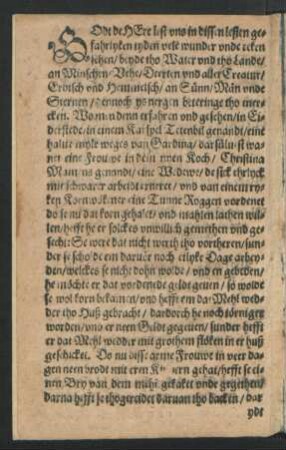 GOdt de HEre lest vns in dissen lesten ge-
fahrlyken tyden vele wunder vnde teken
sehen/ beyde tho Water vnd tho Lande/
an Minschen/ Vehe/ Deerten vnd aller Creatur/
Erdisch vnd Hemmelsch/ an Sünn/ Mân vnde
Sternen/ dennoch ys nergen beteringe tho mer-
cken. Wo men denn erfahren vnd gesehen/ in Ei-
derstede/ in einem Karspel Tetenbül genandt/ eine
halue myle weges van Garding/ dar sülu. st wa-
net eine Frouwe in dem Koch/ Christina
genandt/ eine Wedewe/ de sick ehrlyck
mit schwarer arbeidt erneret/ vnd van einem ry-
ken Korn eine Tunne Roggen vordenet
do se nu dat korn gehalet/ vnd mahlen lathen wil-
len/ hefft he er solckes vnwillich gemethen vnd ge-
secht: Se were dat nicht werth tho vortheren/ sun-
der se scholde em daruör noch etlyke Dage arbey-
den/ welckes se nicht dohn wolde/ vnd en gebeden/
he möchte er dat vordenede geldt geuen/ so wolde
se wol korn bekamen/ vnd hefft em dat Mehl wed-
der tho Huß gebracht/ dardorch he noch törniger
worden/ vnd er neen Geldt gegeuen/ sunder hefft
er dat Mehl wedder mit grothem flöken in er huß
geschicket. Do nu disse arme Frouwe in veer da-
gen neen brodt mit eren gehat/ hefft se ei-
nen Bry van dem mehl gekaket vnde gegethen/
darna hefft se thogereidet daruan tho backen/ dar
ydt